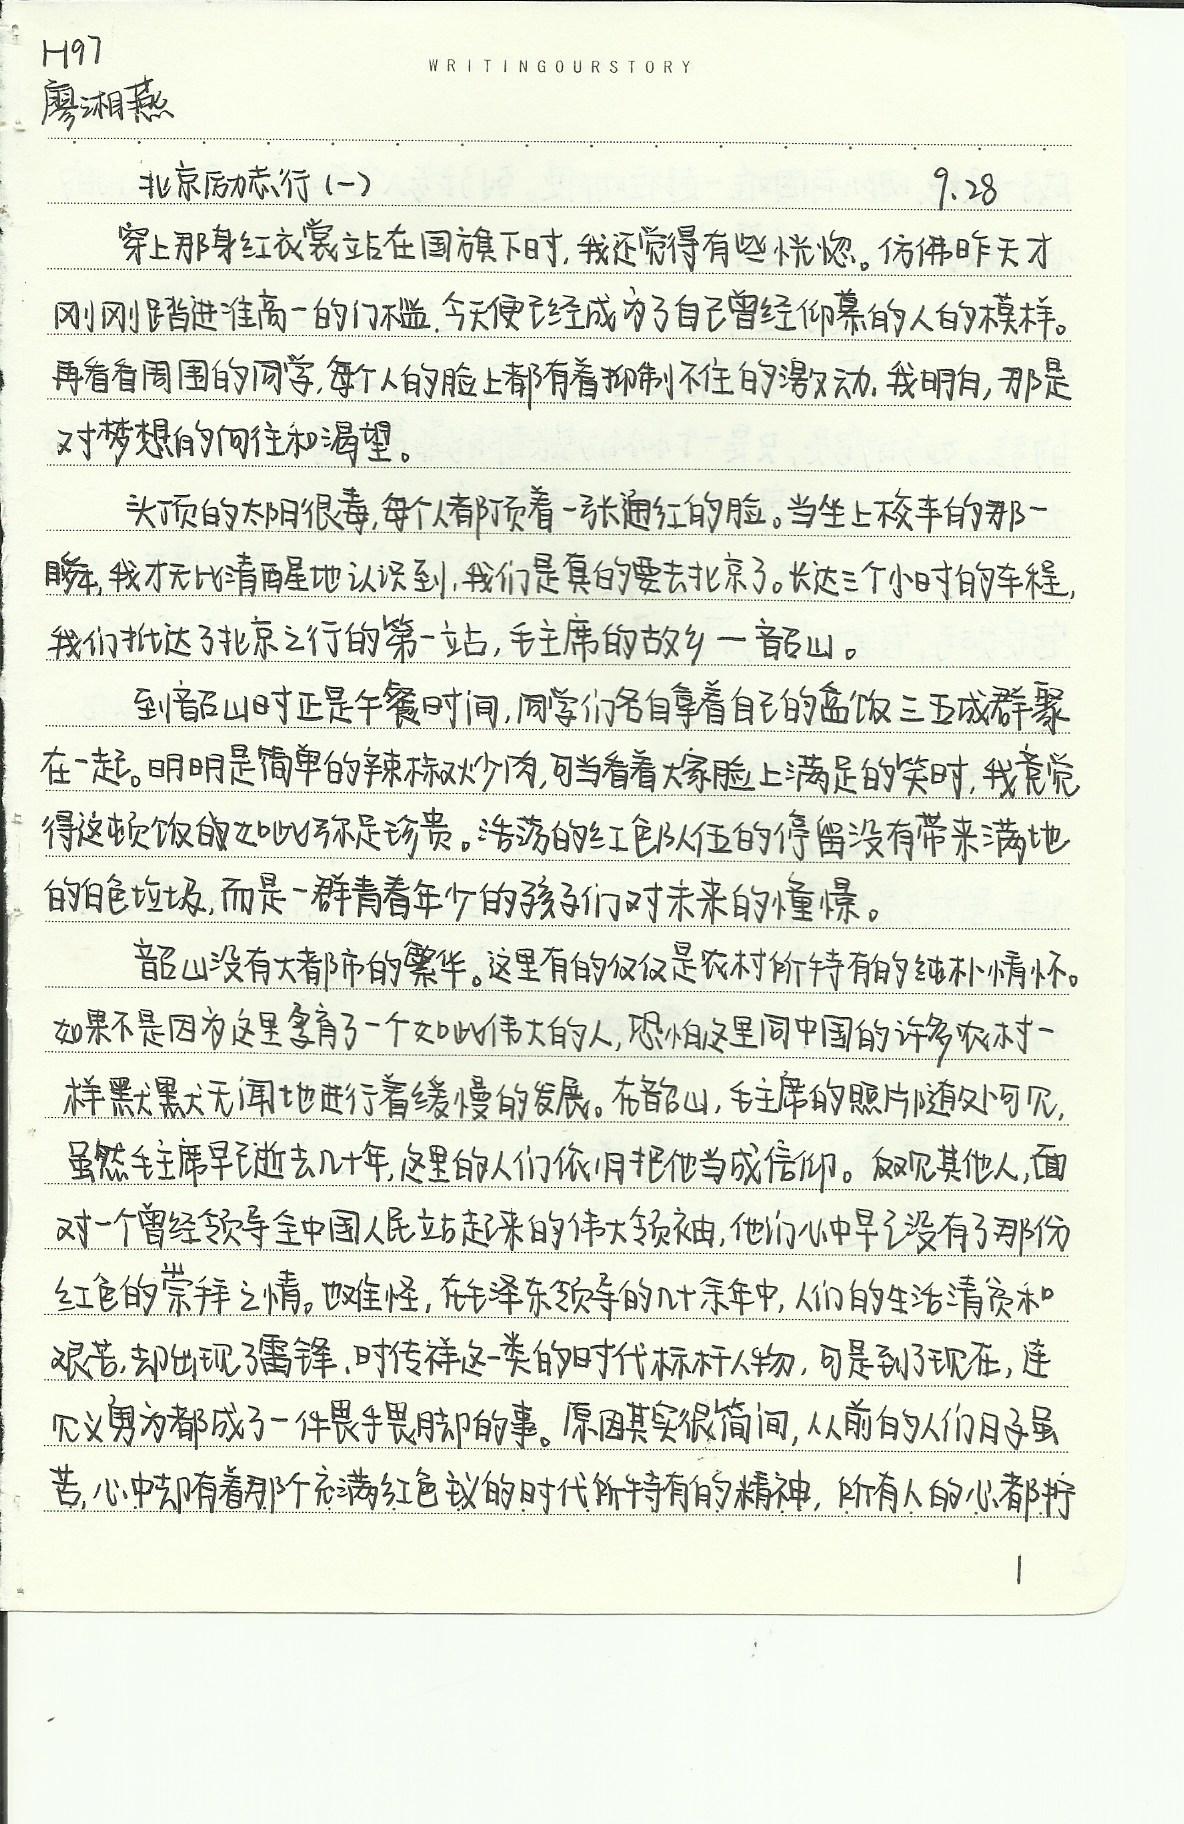 H97
WRITINGOURSTORY
廖湘燕
北京励志行(一) 9.28
穿上那身红衣裳站在国旗下时,我还觉得有些恍惚。仿佛昨天才
刚刚踏进准高一的门槛,今天便已经成为了自己曾经仰慕的人的模样。
再看看周围的同学,每个人的脸上都有着抑制不住的激动,我明白,那是
对梦想的向往和渴望。
头顶的太阳很毒,每个人都顶着一张通红的脸。当坐上校车的那一
我才无比清醒地认识到,我们是真的要去北京了。长达三个小时的车程,
我们抵达了北京之行的第一站,毛主席的故乡—韶山。
到韶山时正是午餐时间,同学们各自拿着自己的盒饭三五成群聚
在一起。明明是简单的辣椒炒肉,可当看着大家脸上满足的笑时,我竟觉
得这顿饭的如此弥足珍贵。浩荡的红色队伍的停留没有带来满地
的白色垃圾,而是一群青春年少的孩子们对未来的憧憬。
韶山没有大都市的繁华。这里有的仅仅是农村所特有的纯朴情怀。
如果不是因为这里孕育了一个如此伟大的人,恐怕这里同中国的许多农村一
样默默无闻地进行着缓慢的发展。在韶山,毛主席的照片随处可见,
虽然毛主席早已逝去几十年,这里的人们依旧把他当成信仰。反观其他人,面
对一个曾经领导全中国人民站起来的伟大领袖,他们心中早已没有了那份
红色的崇拜之情。也难怪,在毛泽东领导的几十余年中,人们的生活清贫和
艰苦,却出现了雷锋、时传祥这一类的时代标杆人物,可是到了现在,连
见义勇为都成了一件畏手畏脚的事。原因其实很简间,从前的人们日子虽
苦,心中却有着那个充满红色主义的时代所特有的精神,所有人的心都拧
1